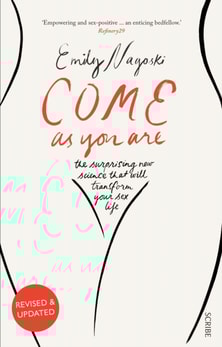 'Empowering and sex-positive ... an enticing bedfellow.'
Refinery29
Emily Nagoski
COME
as you are
the surprising new
science that will
transform
your sex
life
REVISED &
UPDATED
SCRIBE